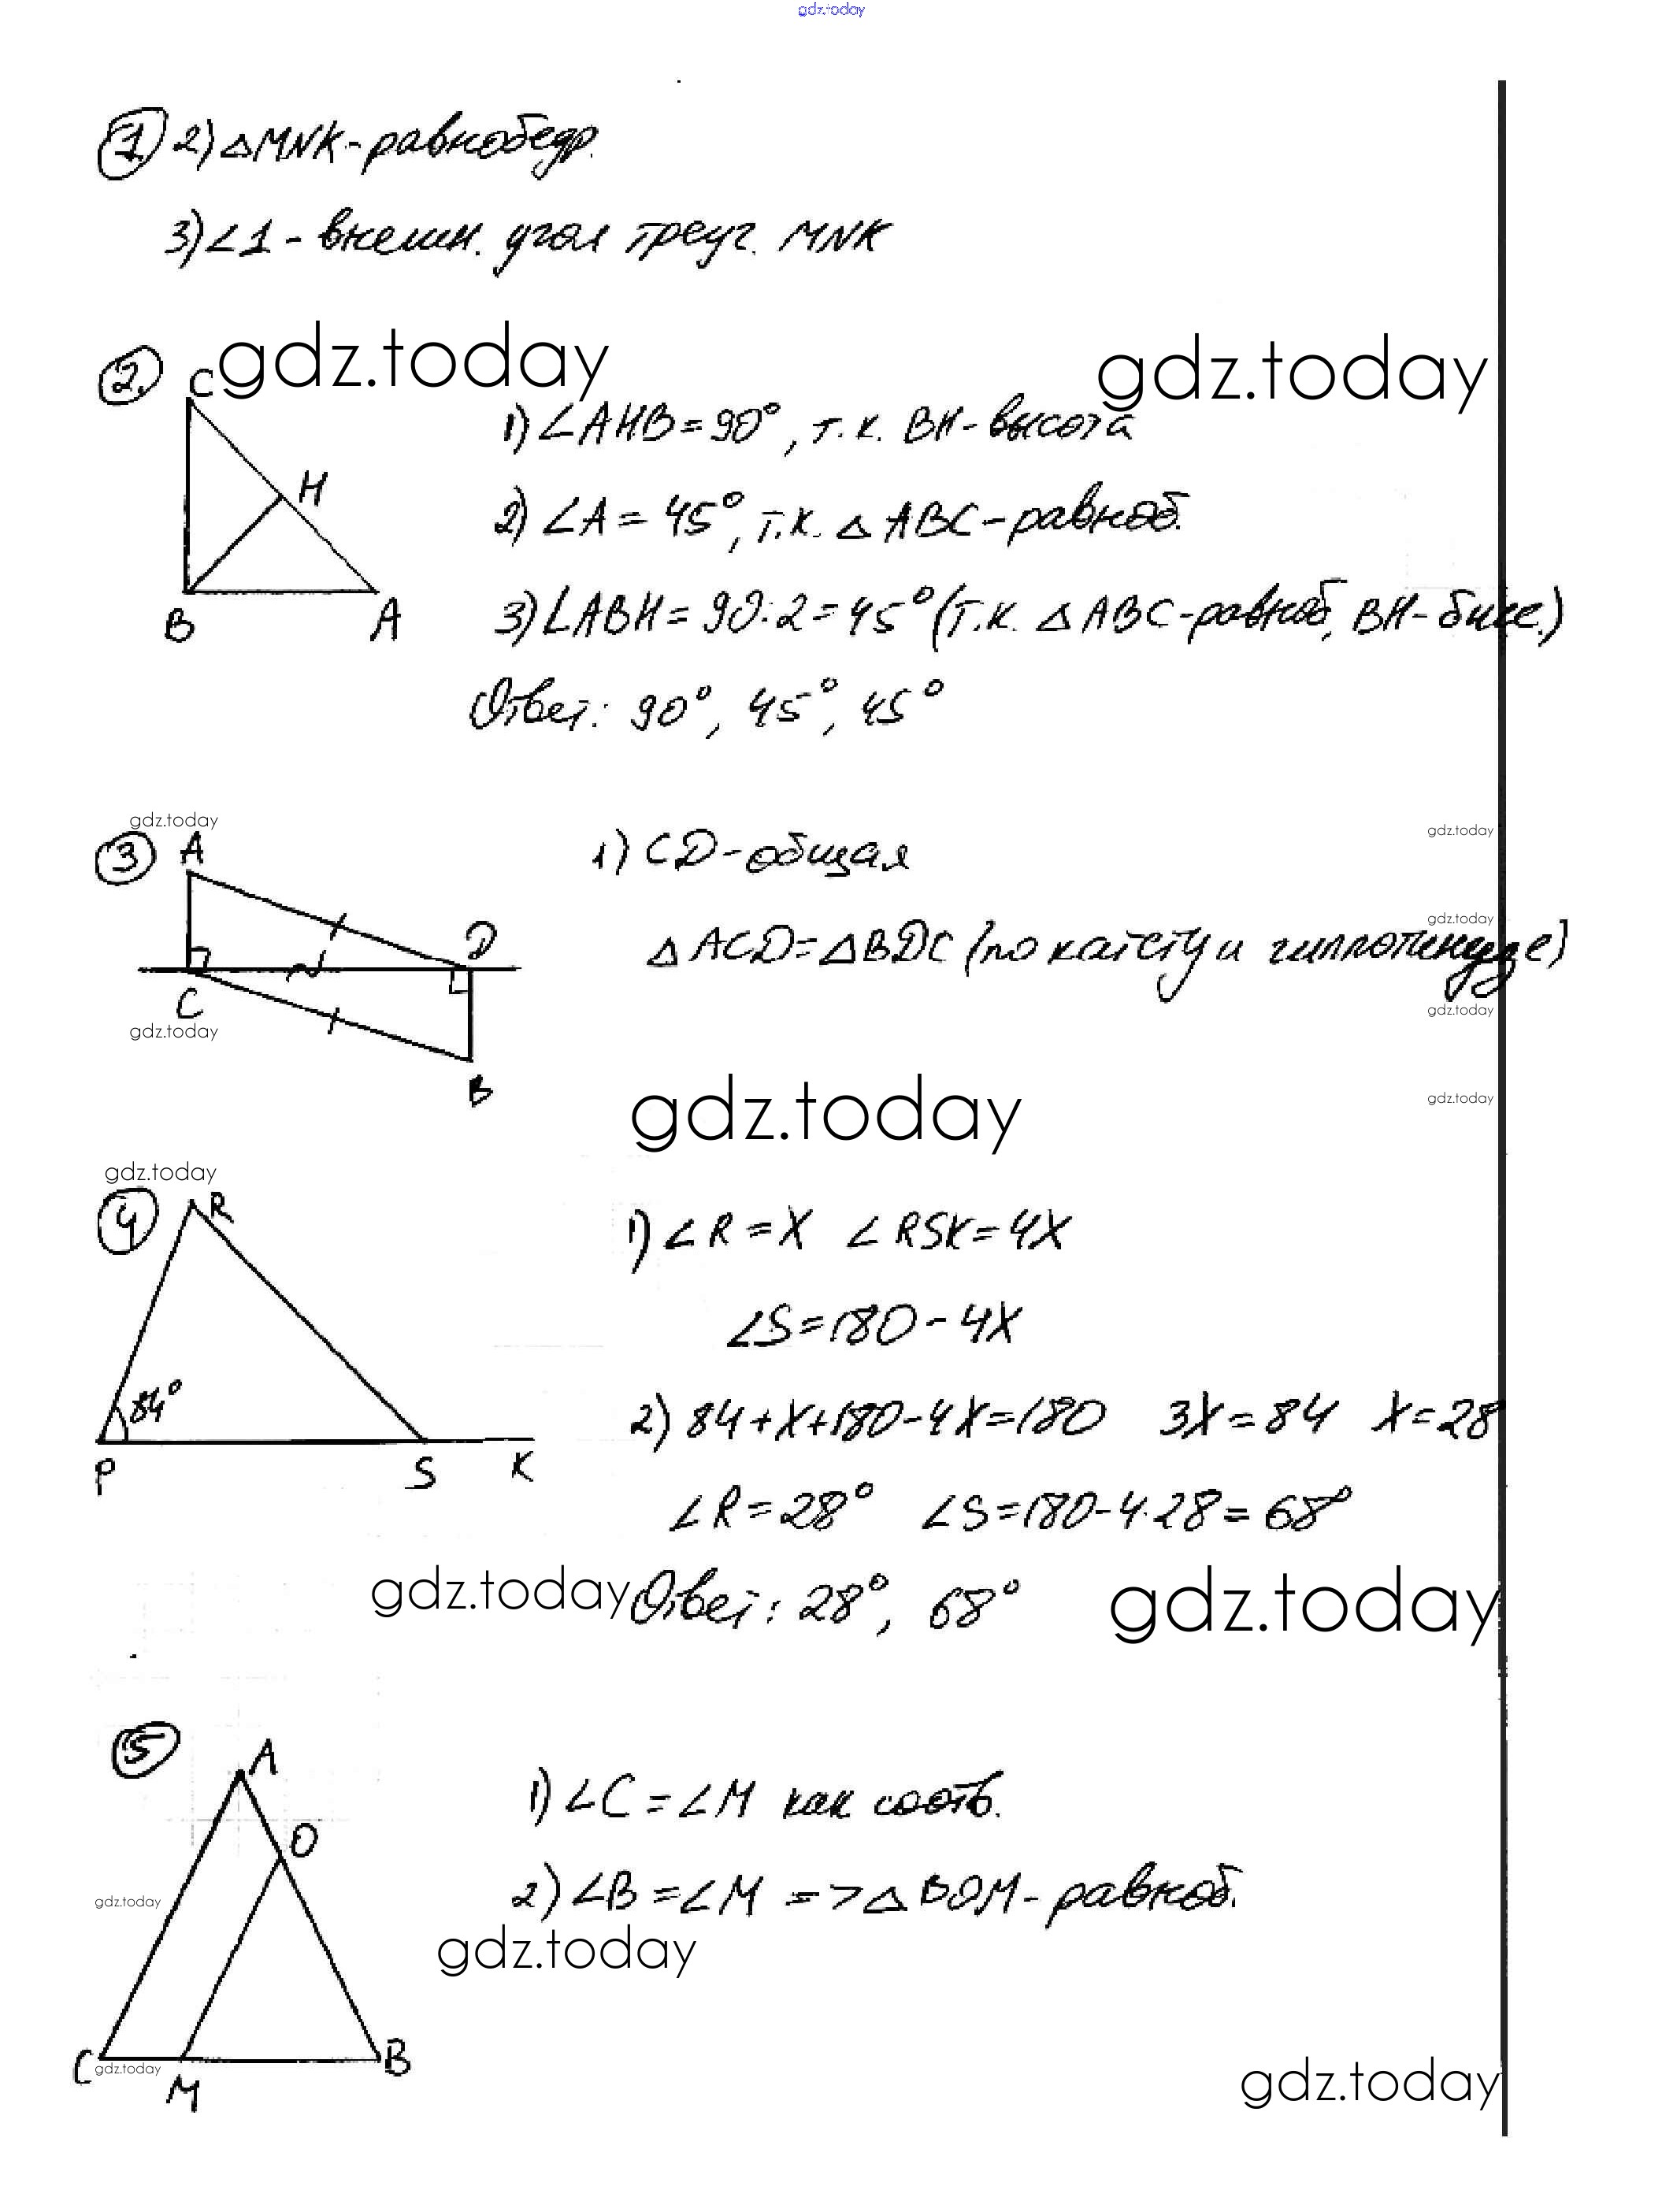 gdz.today
1 2) △MNK - равнобедр.
3) ∠1 - внешн. угол треуг. MNK
gdz.today gdz.today
2. C
H
B A
1) ∠AHB = 90°, т.к. BH - высота
2) ∠A = 45°, т.к. △ABC - равноб.
3) ∠ABH = 90:2 = 45° (т.к. △ABC - равноб, BH - бисс.)
Ответ: 90°, 45°, 45°
gdz.today gdz.today
3 A
D
C
B
1) CD - общая
gdz.today
△ACD = △BDC (по катету и гиппотинузе)
gdz.today gdz.today
gdz.today gdz.today
gdz.today
4 R
84°
P S K
1) ∠R = X ∠RSK = 4X
∠S = 180 - 4X
2) 84 + X + 180 - 4X = 180 3X = 84 X = 28
∠R = 28° ∠S = 180 - 4·28 = 68°
gdz.today Ответ: 28°, 68° gdz.today
5 A
O
C M B
1) ∠C = ∠M как соотв.
2) ∠B = ∠M => △BOM - равноб.
gdz.today
gdz.today
gdz.today gdz.today